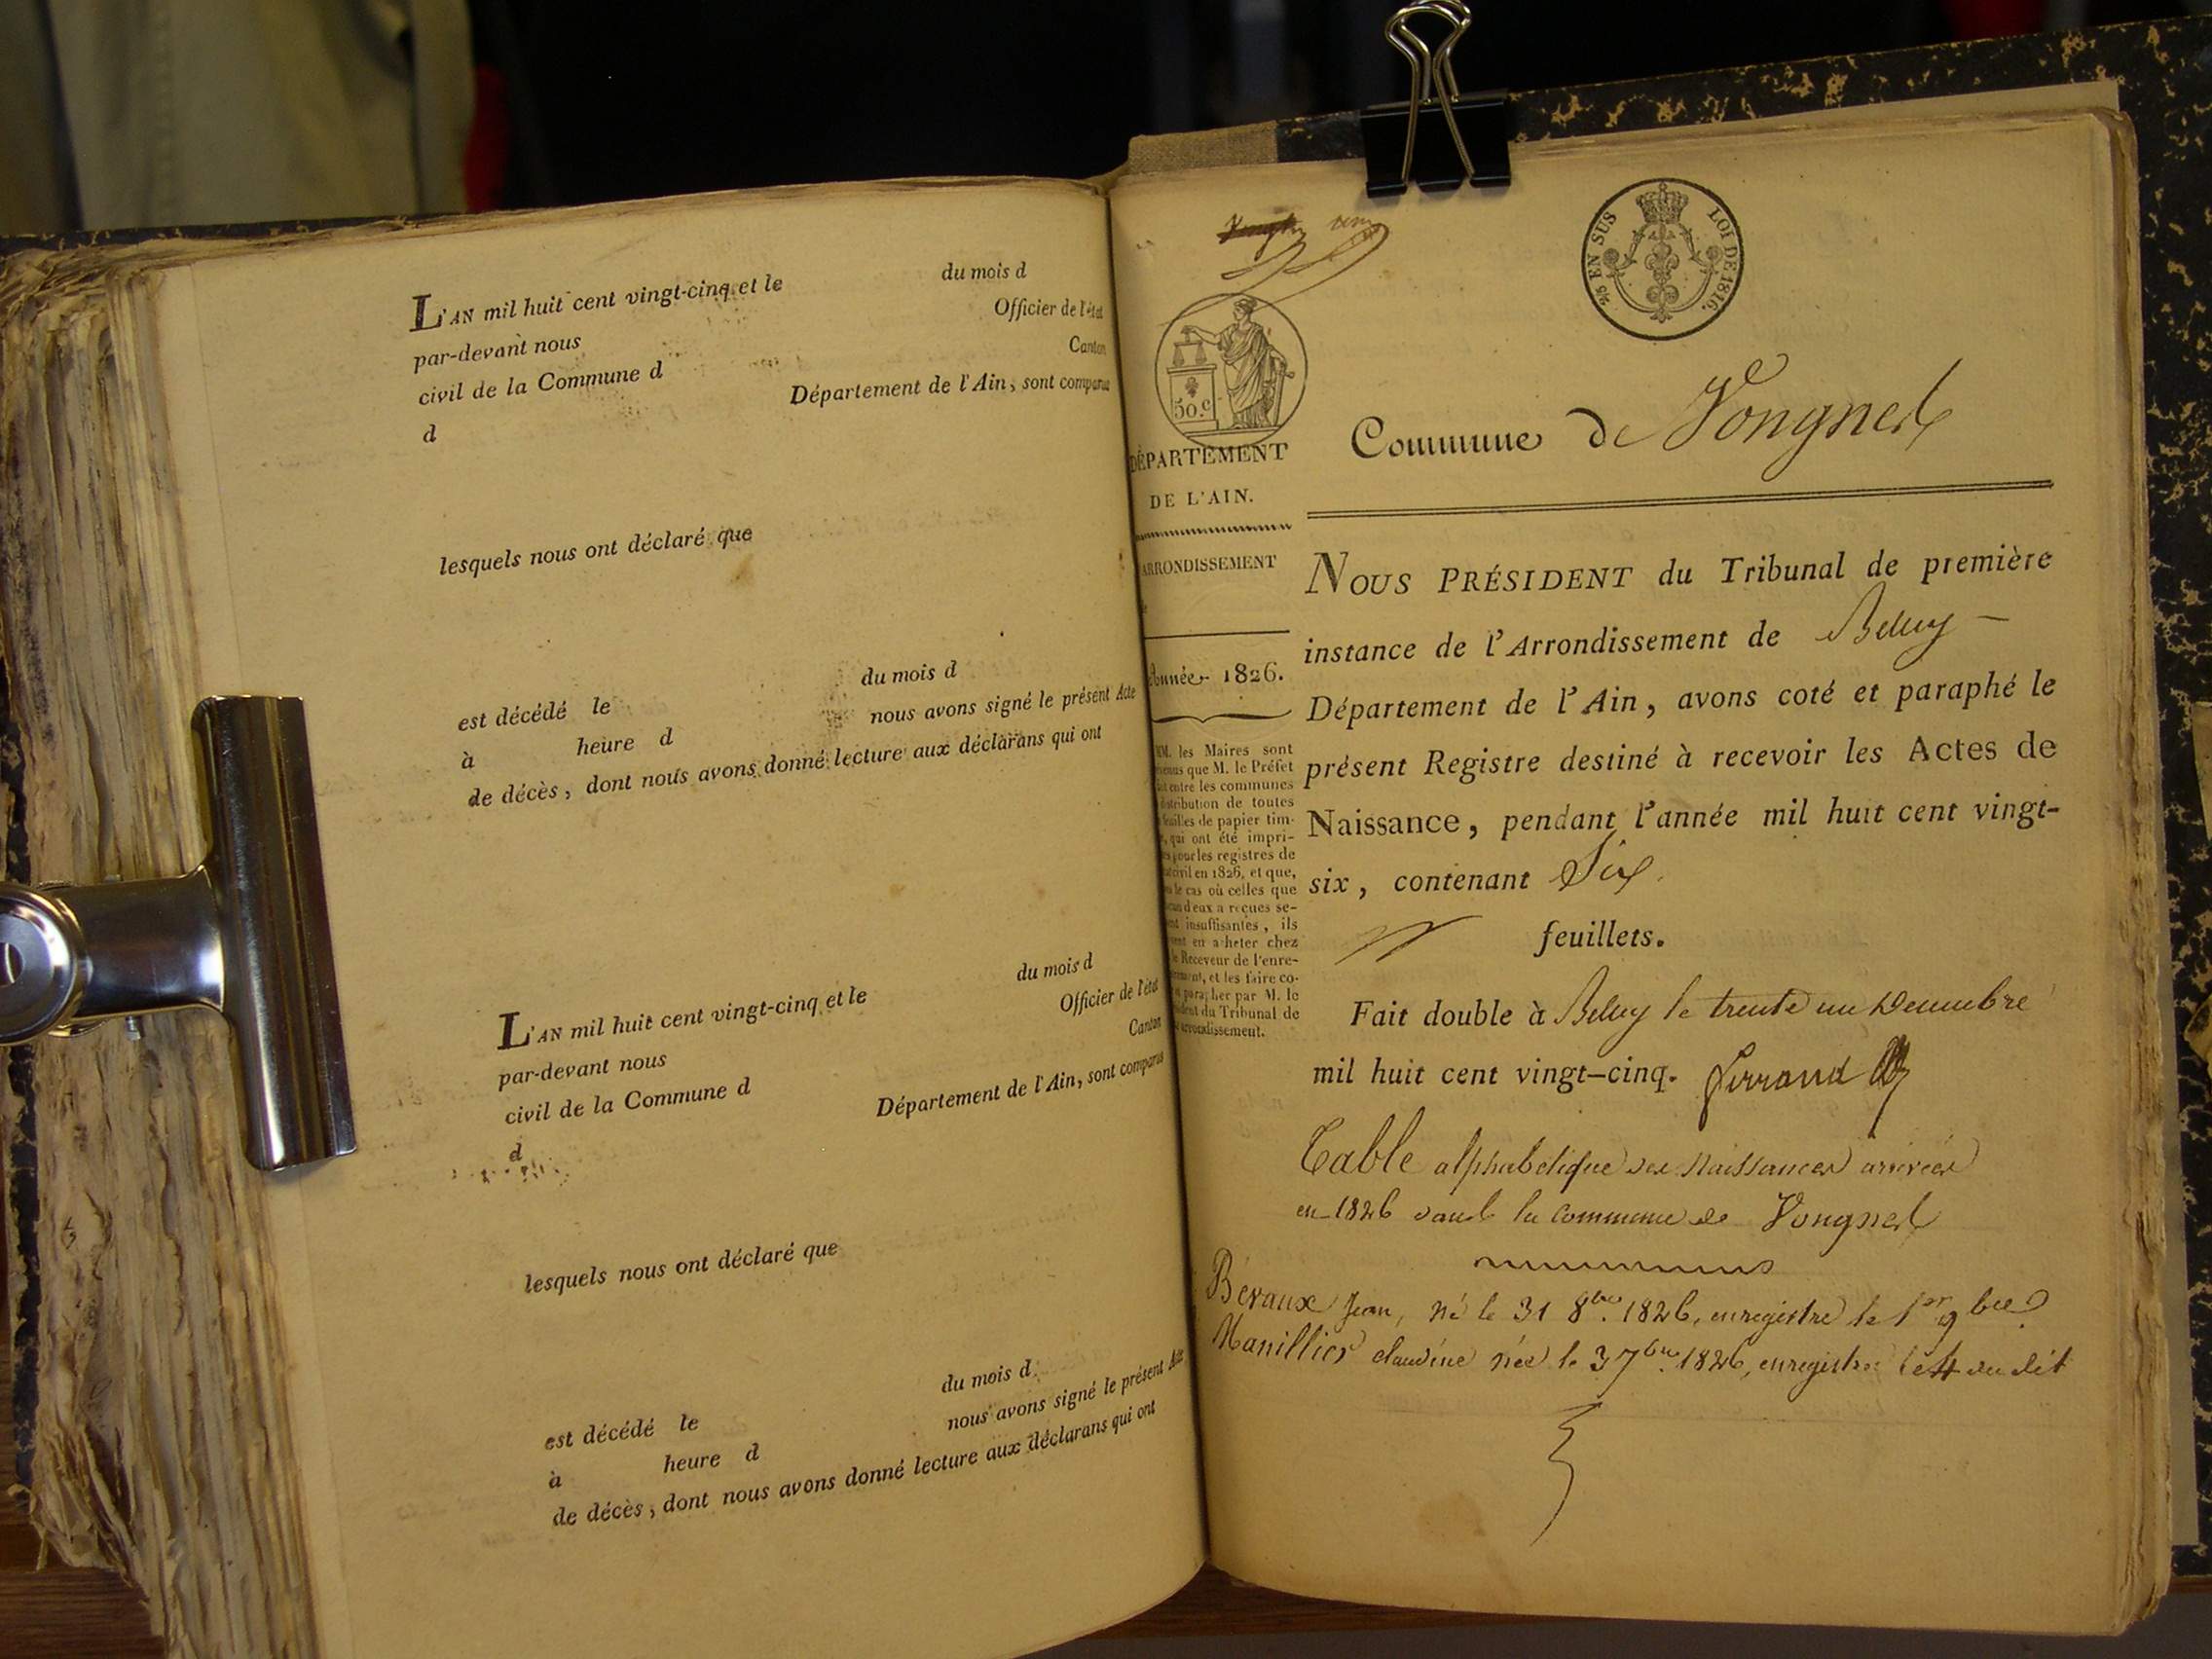 L'AN mil huit cent vingt-cinq et le du mois d
par-devant nous Officier de l'état
civil de la Commune d Canton
d Département de l'Ain, sont comparus
lesquels nous ont déclaré que
est décédé le du mois d
à heure d nous avons signé le présent Acte
de décès, dont nous avons donné lecture aux déclarans qui ont
L'AN mil huit cent vingt-cinq et le du mois d
par-devant nous Officier de l'état
civil de la Commune d Canton
d Département de l'Ain, sont comparus
lesquels nous ont déclaré que
est décédé le du mois d
à heure d nous avons signé le présent Acte
de décès, dont nous avons donné lecture aux déclarans qui ont
EN SUS LOI DE 1816.
50.c
DÉPARTEMENT
DE L'AIN.
ARRONDISSEMENT
Année 1826.
MM. les Maires sont
que M. le Préfet
entre les communes
distribution de toutes
feuilles de papier tim-
qui ont été impri-
pour les registres de
civil en 1826, et que,
le cas où celles que
d'eux a reçues se-
insuffisantes, ils
en acheter chez
le Receveur de l'enre-
et les faire co-
parapher par M. le
du Tribunal de
arrondissement.
Commune de Vongnes
NOUS PRÉSIDENT du Tribunal de première
instance de l'Arrondissement de Belley
Département de l'Ain, avons coté et paraphé le
présent Registre destiné à recevoir les Actes de
Naissance, pendant l'année mil huit cent vingt-
six, contenant Six
feuillets.
Fait double à Belley le trente un Decembre
mil huit cent vingt-cinq. Ferrand
Table alphabetique des Naissances arrivées
en 1826 dans la commune de Vongnes
Béraux Jean, né le 31 8bre. 1826, enregistré le 1er 9bre
Manillier claudine née le 3 7bre. 1826, enregistrée le 4 du dit